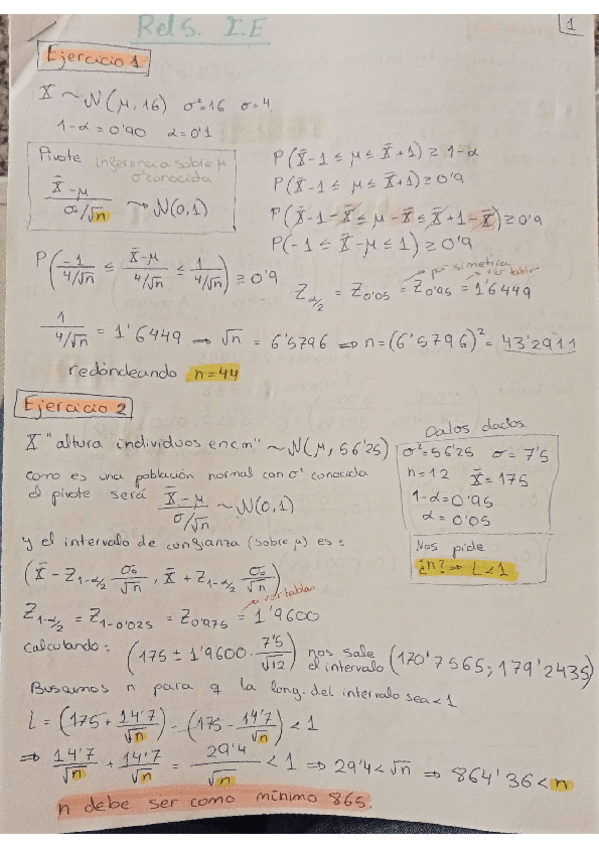 Rel 5. I.E
1
Ejercicio 1
X ~ N(μ, 16) σ²=16 σ=4
1-α=0'90 α=0'1
Pivote inferencia sobre μ
σ conocida
(X̄-μ)/(σ₀/√n) ⇝ N(0,1)
P(X̄-1 ≤ μ ≤ X̄+1) ≥ 1-α
P(X̄-1 ≤ μ ≤ X̄+1) ≥ 0'9
P(X̄-1-X̄ ≤ μ-X̄ ≤ X̄+1-X̄) ≥ 0'9
P(-1 ≤ X̄-μ ≤ 1) ≥ 0'9
P(-1/(4/√n) ≤ (X̄-μ)/(4/√n) ≤ 1/(4/√n)) ≥ 0'9
por simetria
ver tabla
Z_{α/2} = Z_{0'05} = Z_{0'95} = 1'6449
1/(4/√n) = 1'6449 ⇒ √n = 6'5796 ⇒ n=(6'5796)² = 43'2911
redondeando n=44
Ejercicio 2
X "altura individuos en cm" ~ N(μ, 56'25)
como es una población normal con σ² conocida
el pivote será (X̄-μ)/(σ/√n) ~ N(0,1)
Datos dados
σ²=56'25 σ=7'5
n=12 x̄=175
1-α=0'95
α=0'05
Nos pide
¿n? ⇒ L<1
y el intervalo de confianza (sobre μ) es:
(X̄ - Z_{1-α/2} σ₀/√n , X̄ + Z_{1-α/2} σ₀/√n)
ver tabla
Z_{1-α/2} = Z_{1-0'025} = Z_{0'975} = 1'9600
Calculando: (175 ± 1'9600 · 7'5/√12) nos sale el intervalo (170'7565; 179'2435)
Buscamos n para q la long. del intervalo sea < 1
L = (175 + 14'7/√n) - (175 - 14'7/√n) < 1
⇒ 14'7/√n + 14'7/√n = 29'4/√n < 1 ⇒ 29'4 < √n ⇒ 864'36 < n
n debe ser como mínimo 865.